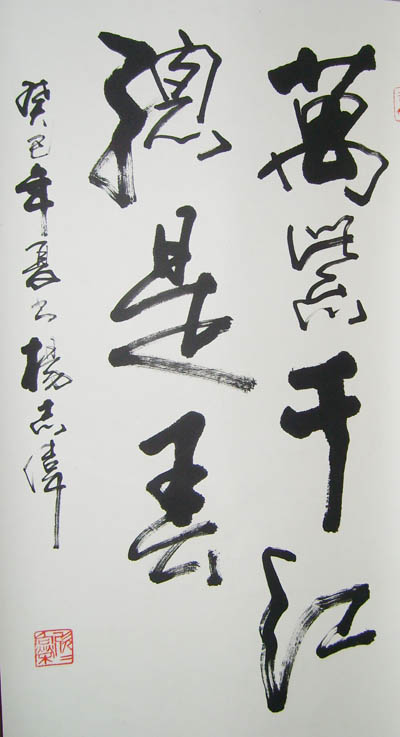 萬紫千紅
總是春
癸巳年夏书楊志偉